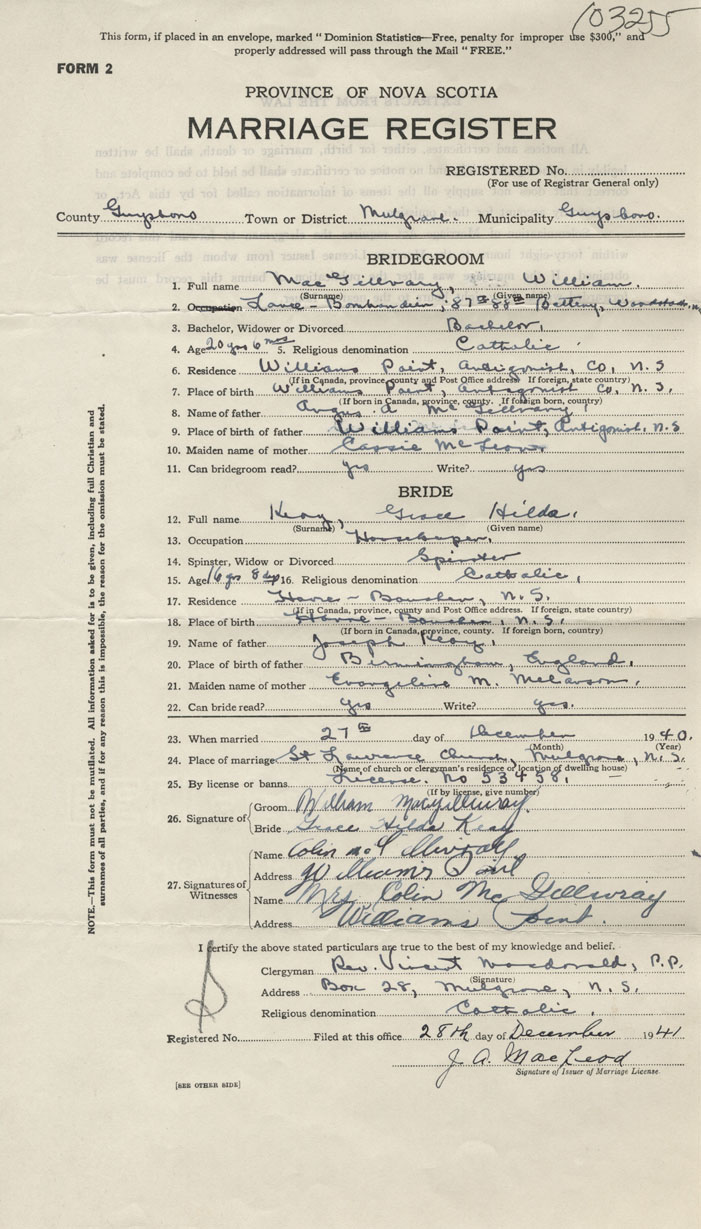 103255
This form, if placed in an envelope, marked "Dominion Statistics—Free, penalty for improper use $300," and
properly addressed will pass through the Mail "FREE."
FORM 2
PROVINCE OF NOVA SCOTIA
MARRIAGE REGISTER
REGISTERED No.
(For use of Registrar General only)
County Guysboro Town or District Mulgrave. Municipality Guysboro.
BRIDEGROOM
1. Full name MacGillvary, William.
(Surname) (Given name)
2. Occupation Lance - Bombardier, 87th 88th Battery, Woodstock,
3. Bachelor, Widower or Divorced Bachelor,
4. Age 20 yrs 6 mos 5. Religious denomination Catholic
6. Residence Williams Point, Antigonish, Co, N.S
(If in Canada, province, county and Post Office address. If foreign, state country)
7. Place of birth Williams Point, Antigonish Co, N.S.
(If born in Canada, province, county. If foreign born, country)
8. Name of father Angus. A McGillvary,
9. Place of birth of father Williams Point, Antigonish, N.S
10. Maiden name of mother Cassie McLeod
11. Can bridegroom read? yes Write? yes
BRIDE
12. Full name Keay, Grace Hilda,
(Surname) (Given name)
13. Occupation Housekeeper,
14. Spinster, Widow or Divorced Spinster
15. Age 16 yrs 8 dys 16. Religious denomination Catholic,
17. Residence Havre - Boucher, N.S.
(If in Canada, province, county and Post Office address. If foreign, state country)
18. Place of birth Havre - Boucher, N.S.
(If born in Canada, province, county. If foreign born, country)
19. Name of father Joseph Keay,
20. Place of birth of father Birmingham, England,
21. Maiden name of mother Evangeline M.
22. Can bride read? yes Write? yes.
23. When married 27th day of December 1940.
(Month) (Year)
24. Place of marriage St Lawrence Church, Mulgrave, N.S.
(Name of church or clergyman's residence or location of dwelling house)
25. By license or banns License. No 53458.
(If by license, give number)
26. Signature of Groom William MacGillivray.
Bride Grace Hilda Keay
27. Signatures of Witnesses Name Colin McGillivray
Address Williams Point
Name Mrs Colin McGillivray
Address Williams Point.
I certify the above stated particulars are true to the best of my knowledge and belief.
Clergyman Rev. Vincent Macdonald, P.P.
(Signature)
Address Box 28, Mulgrave, N.S.
Religious denomination Catholic.
Registered No. Filed at this office 28th day of December 1941
J. A. MacLeod
Signature of Issuer of Marriage License.
[SEE OTHER SIDE]
NOTE.—This form must not be mutilated. All information asked for is to be given, including full Christian and
surnames of all parties, and if for any reason this is impossible, the reason for the omission must be stated.